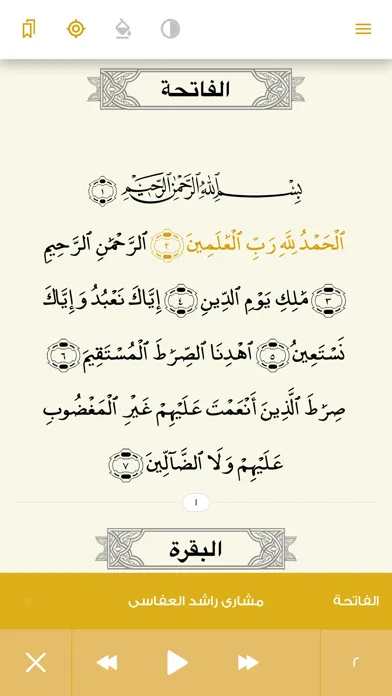 الفاتحة
بِسْمِ ٱللَّهِ ٱلرَّحْمَٰنِ ٱلرَّحِيمِ ١
ٱلْحَمْدُ لِلَّهِ رَبِّ ٱلْعَٰلَمِينَ ٢ ٱلرَّحْمَٰنِ ٱلرَّحِيمِ
٣ مَٰلِكِ يَوْمِ ٱلدِّينِ ٤ إِيَّاكَ نَعْبُدُ وَإِيَّاكَ
نَسْتَعِينُ ٥ ٱهْدِنَا ٱلصِّرَٰطَ ٱلْمُسْتَقِيمَ ٦
صِرَٰطَ ٱلَّذِينَ أَنْعَمْتَ عَلَيْهِمْ غَيْرِ ٱلْمَغْضُوبِ
عَلَيْهِمْ وَلَا ٱلضَّآلِّينَ ٧
١
البقرة
الفاتحة مشاري راشد العفاسي
٢